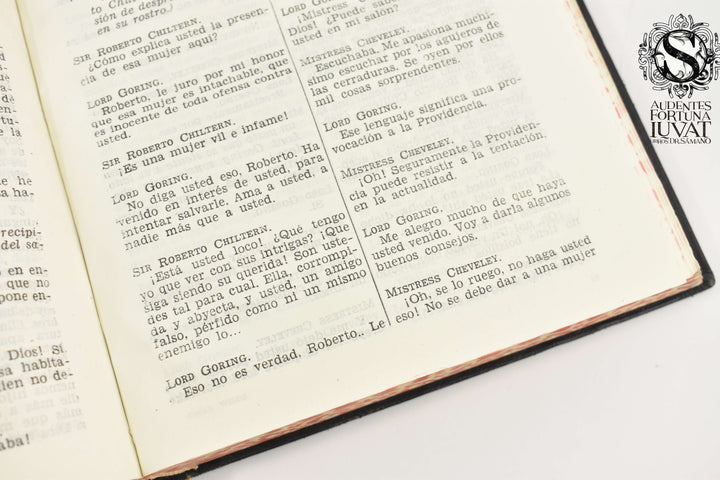 to Chiltern en una
sión de despre-
en su rostro.)
SIR ROBERTO CHILTERN.
¿Cómo explica usted la presen-
cia de esa mujer aquí?
LORD GORING.
Roberto, le juro por mi honor
que esa mujer es intachable, que
es inocente de toda ofensa contra
usted.
SIR ROBERTO CHILTERN.
¡Es una mujer vil e infame!
LORD GORING.
No diga usted eso, Roberto. Ha
venido en interés de usted, para
intentar salvarle. Ama a usted, a
nadie más que a usted.
SIR ROBERTO CHILTERN.
¡Está usted loco! ¿Qué tengo
yo que ver con sus intrigas? ¡Que
siga siendo su querida! Son uste-
des tal para cual. Ella, corrompi-
da y abyecta, y usted, un amigo
falso, pérfido como ni un mismo
enemigo lo...
LORD GORING.
Eso no es verdad, Roberto.. Le
LORD GORING.
¡Mistress
Dios! ¿Puede sabe
usted en mi salón?
MISTRESS CHEVELEY.
Escuchaba. Me apasiona muchí-
simo escuchar por los agujeros de
las cerraduras. Se oyen por ellos
mil cosas sorprendentes.
LORD GORING.
Ese lenguaje significa una pro-
vocación a la Providencia.
MISTRESS CHEVELEY.
¡Oh! Seguramente la Providen-
cia puede resistir a la tentación,
en la actualidad.
LORD GORING.
Me alegro mucho de que haya
usted venido. Voy a darla algunos
buenos consejos.
MISTRESS CHEVELEY.
¡Oh, se lo ruego, no haga usted
eso! No se debe dar a una mujer
he
sa ha-
recipi-
del sa-
en en-
que no
pone en-
Dios! Sí,
habita-
ien no de-
aba!
S
AUDENTES
FORTUNA
IUVAT
LIBROS DR. SÁMANO